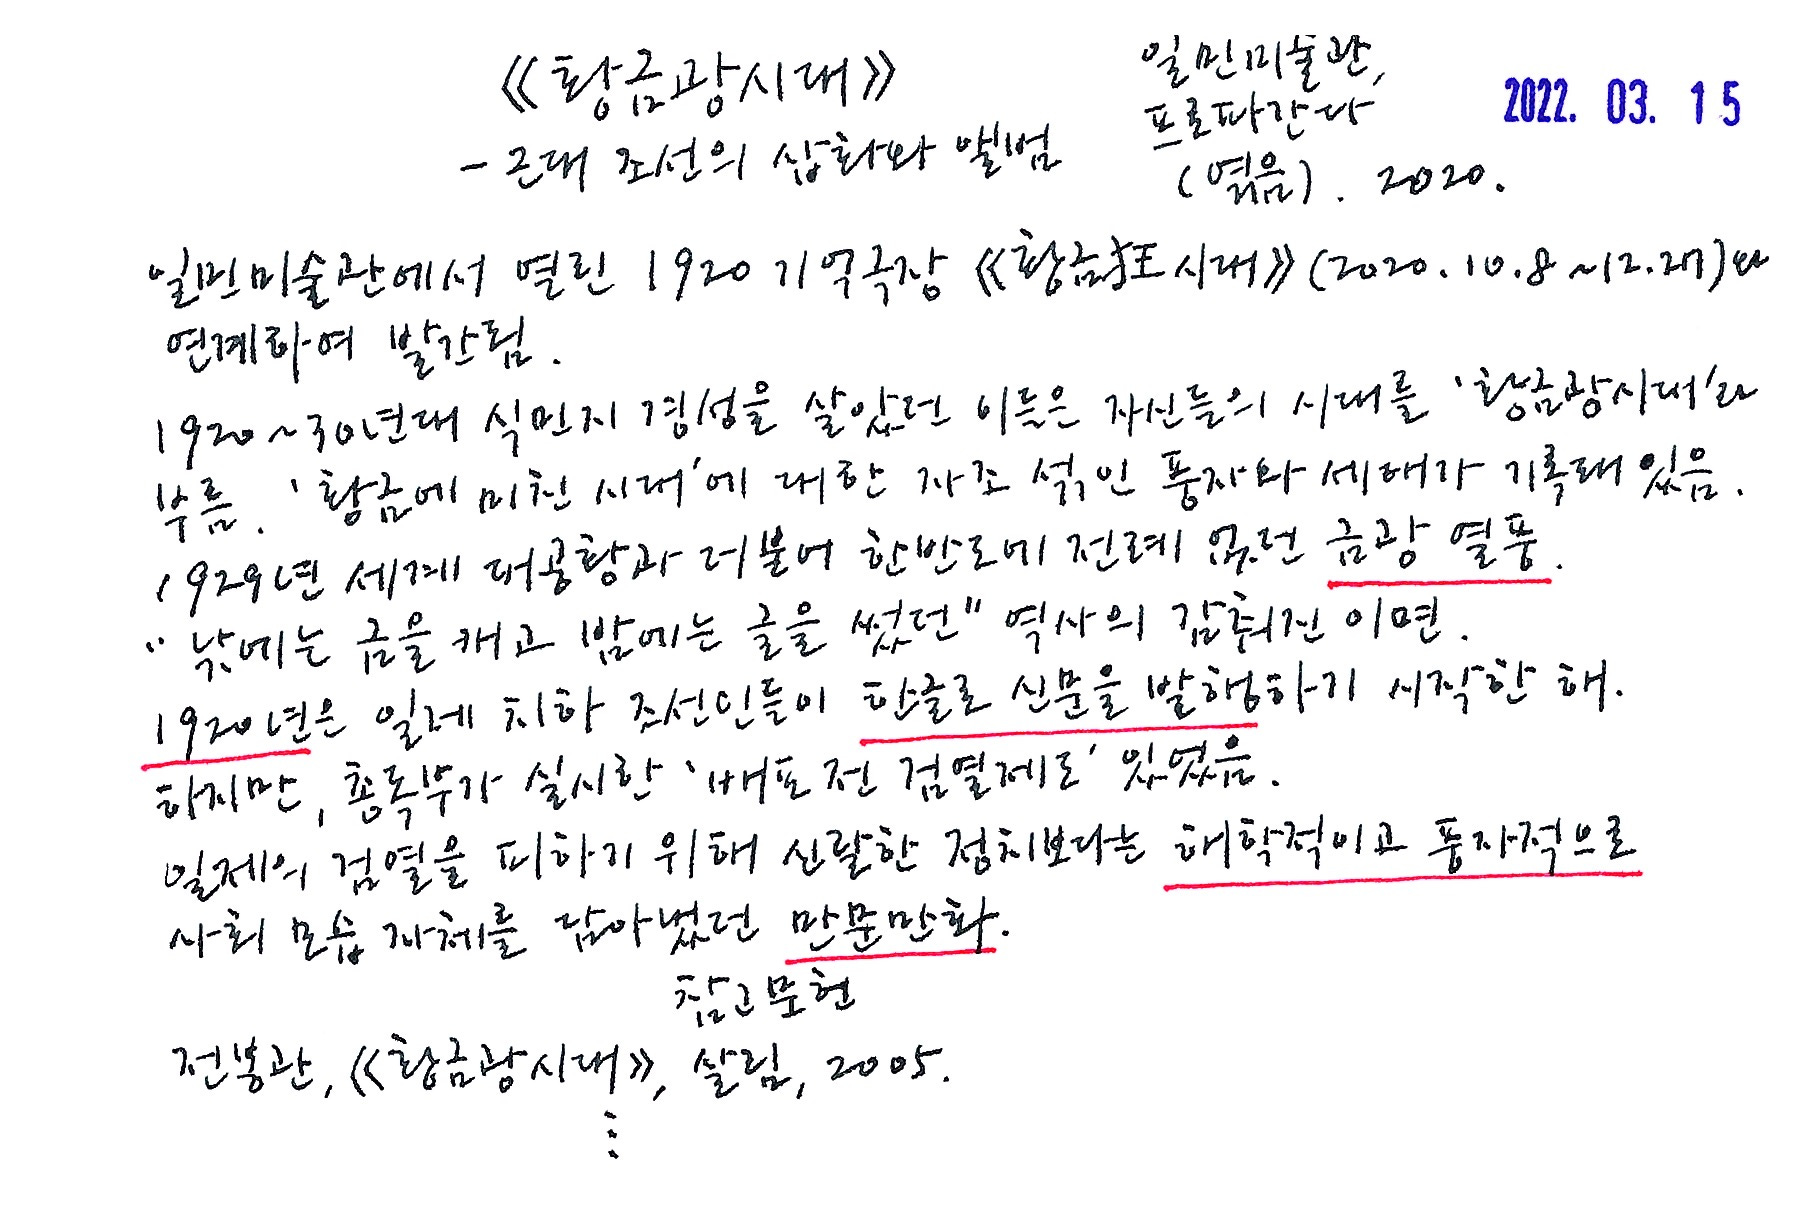 《황금광시대》
- 근대 조선의 삽화와 앨범
일민미술관,
프로파간다
(엮음). 2020.
2022. 03. 15
일민미술관에서 열린 1920 기억극장 《황금狂시대》(2020.10.8~12.27)와
연계하여 발간됨.
1920~30년대 식민지 경성을 살았던 이들은 자신들의 시대를 '황금광시대'라
부름. '황금에 미친 시대'에 대한 자조 섞인 풍자와 세태가 기록돼 있음.
1929년 세계 대공황과 더불어 한반도에 전례 없던 금광 열풍.
"낮에는 금을 캐고 밤에는 글을 썼던" 역사의 감춰진 이면.
1920년은 일제 치하 조선인들이 한글로 신문을 발행하기 시작한 해.
하지만, 총독부가 실시한 '배포 전 검열제도' 있었음.
일제의 검열을 피하기 위해 신랄한 정치보다는 해학적이고 풍자적으로
사회 모습 자체를 담아냈던 만문만화.
참고문헌
전봉관, 《황금광시대》, 살림, 2005.
⋮